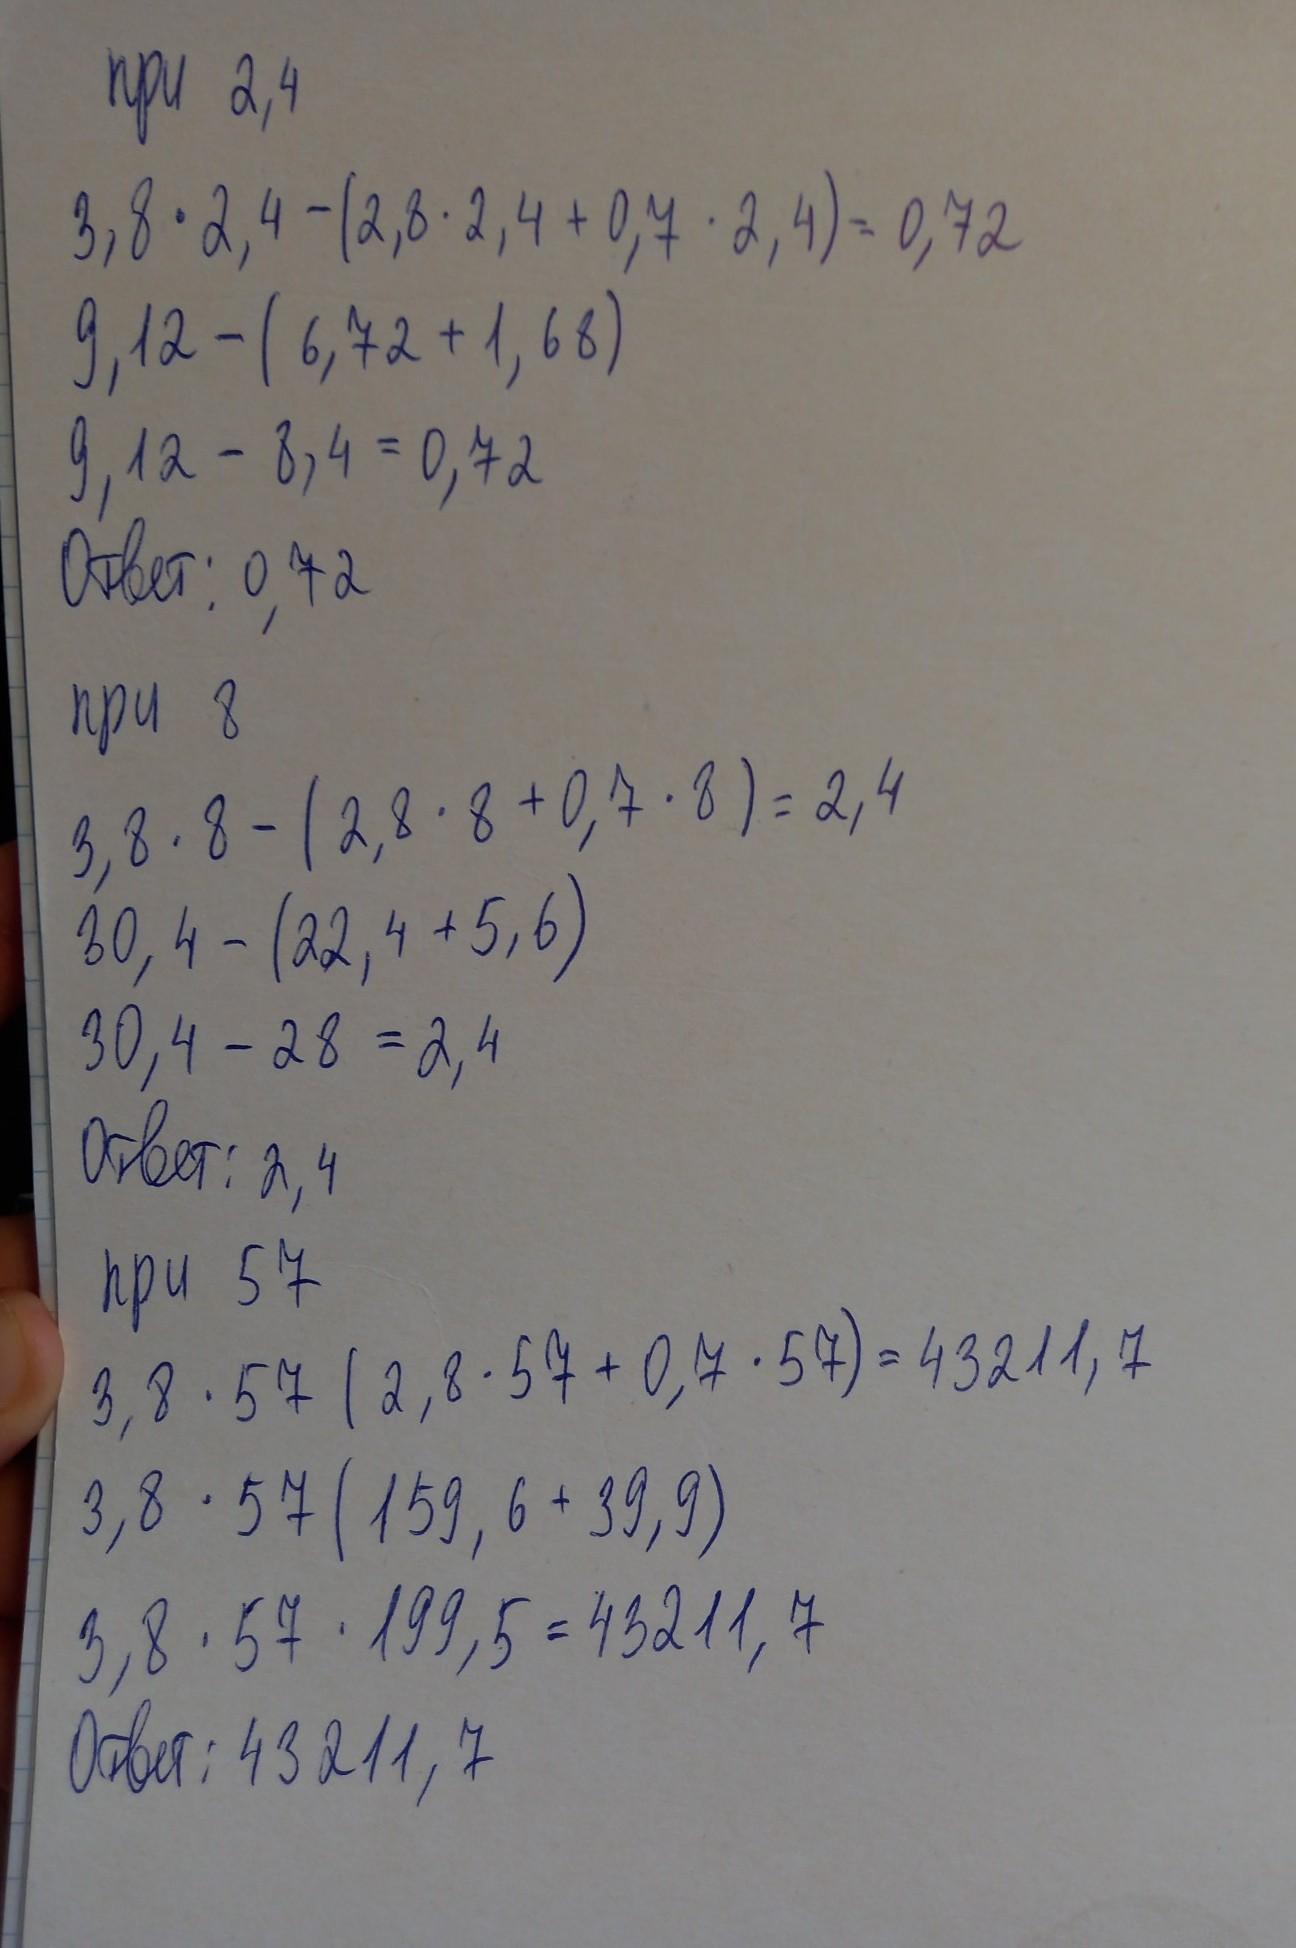 при 2,4
3,8·2,4-(2,8·2,4+0,7·2,4)=0,72
9,12-(6,72+1,68)
9,12-8,4=0,72
Ответ: 0,72
при 8
3,8·8-(2,8·8+0,7·8)=2,4
30,4-(22,4+5,6)
30,4-28=2,4
Ответ: 2,4
при 57
3,8·57(2,8·57+0,7·57)=43211,7
3,8·57(159,6+39,9)
3,8·57·199,5=43211,7
Ответ: 43211,7